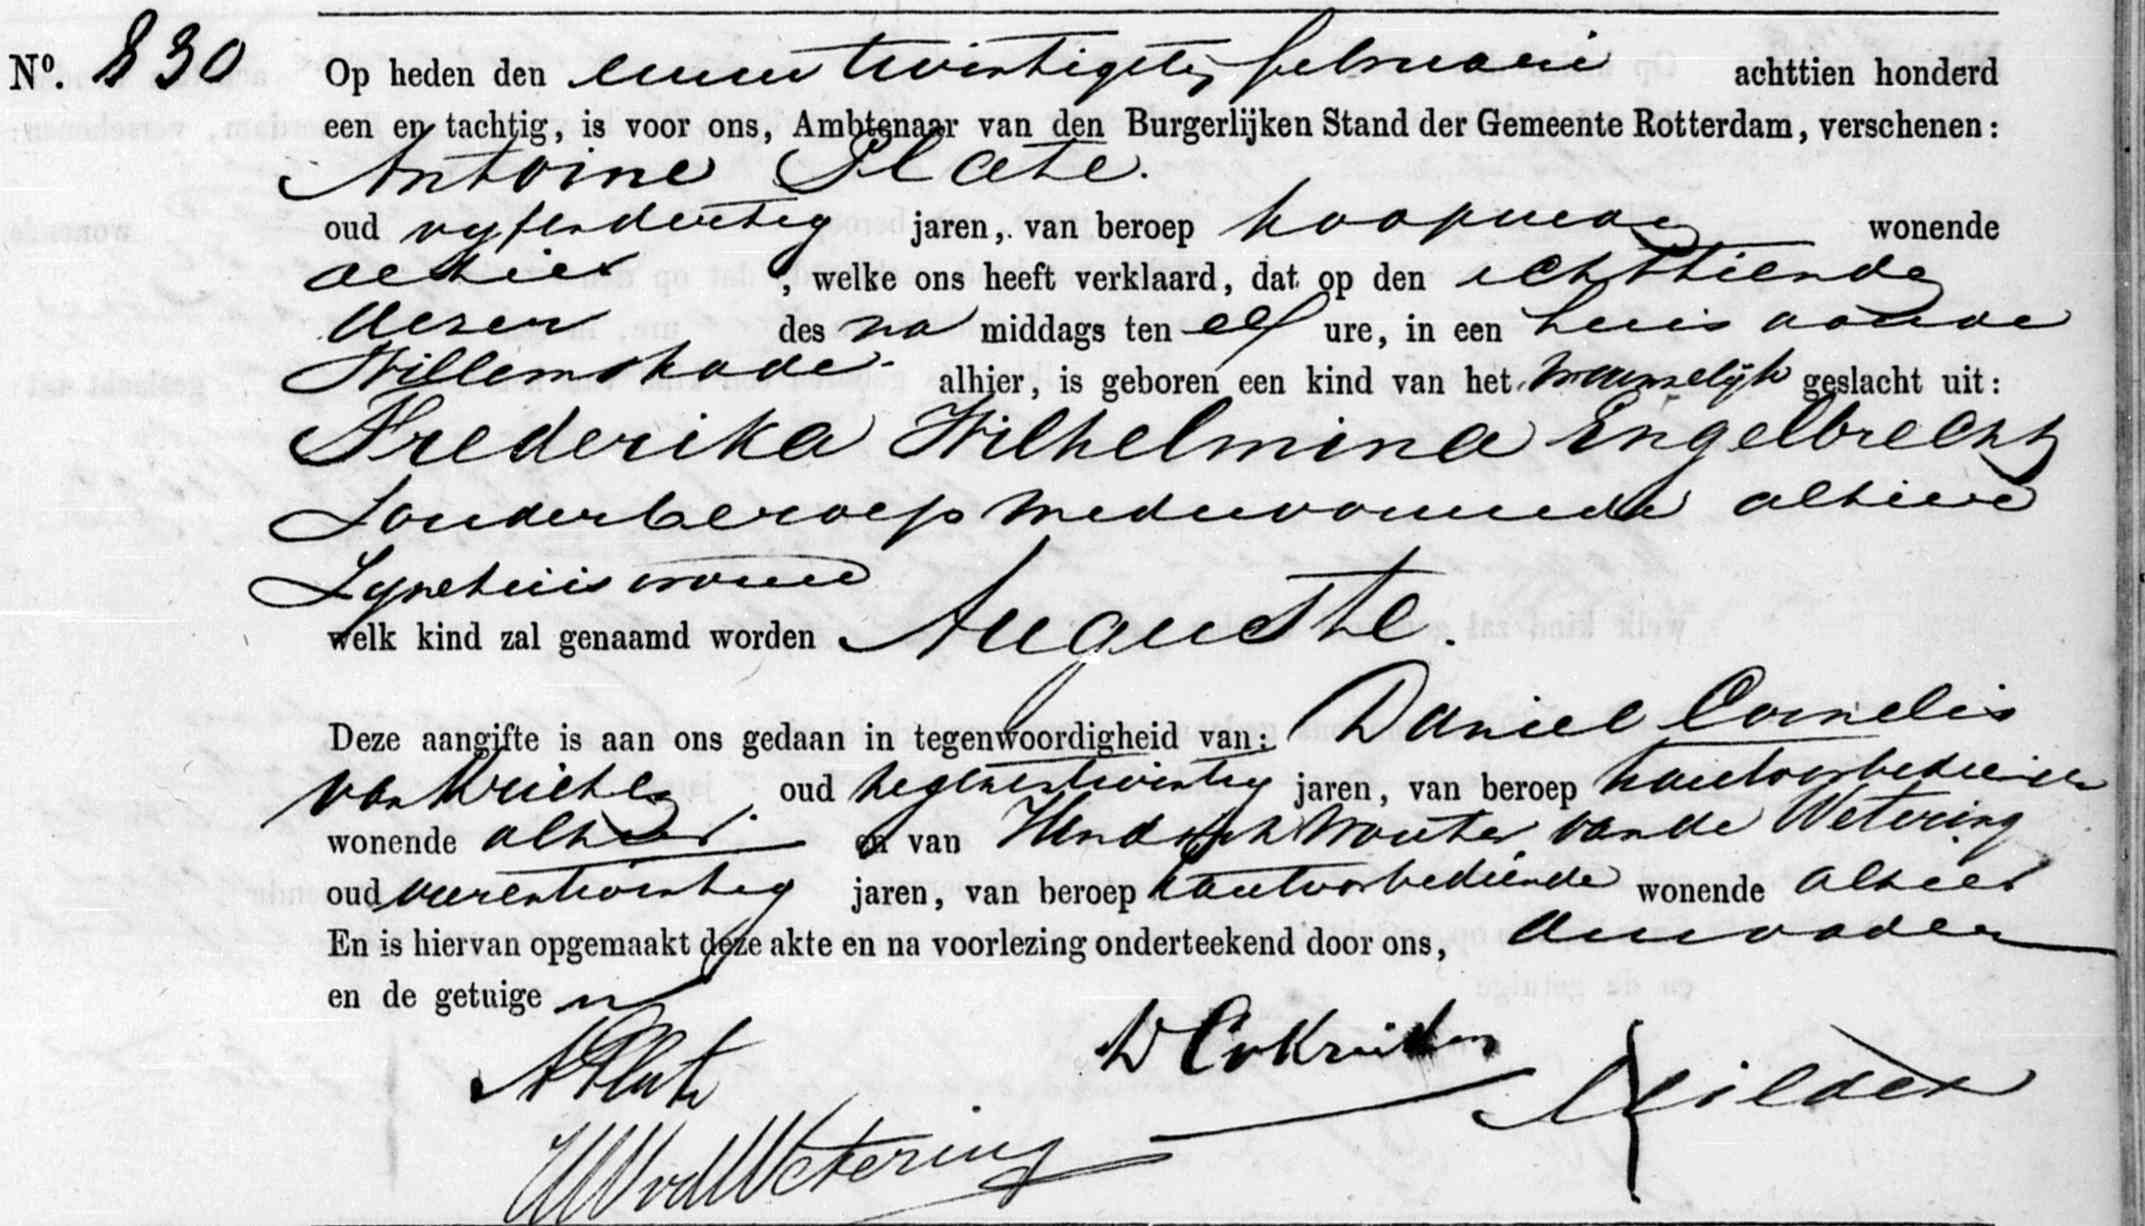 Nº. 830 Op heden den eenen twintigsten februarii achttien honderd
een en tachtig, is voor ons, Ambtenaar van den Burgerlijken Stand der Gemeente Rotterdam, verschenen:
Antoine Plate.
oud vyfendertig jaren, van beroep koopman wonende
alhier, welke ons heeft verklaard, dat op den achttienden
dezer des na middags ten elf ure, in een huis aan de
Willemskade alhier, is geboren een kind van het vrouwelijk geslacht uit:
Frederika Wilhelmina Engelbrecht
Zonder beroep mede wonende alhier
Zyne huisvrouw
welk kind zal genaamd worden Auguste.
Deze aangifte is aan ons gedaan in tegenwoordigheid van: Daniel Cornelis
van oud negenentwintig jaren, van beroep kantoorbediende
wonende alhier en van Hendrik Wouter van de Wetering
oud vierentwintig jaren, van beroep kantoorbediende wonende alhier
En is hiervan opgemaakt deze akte en na voorlezing onderteekend door ons, den vader
en de getuigen
A Plate
HWvdWetering